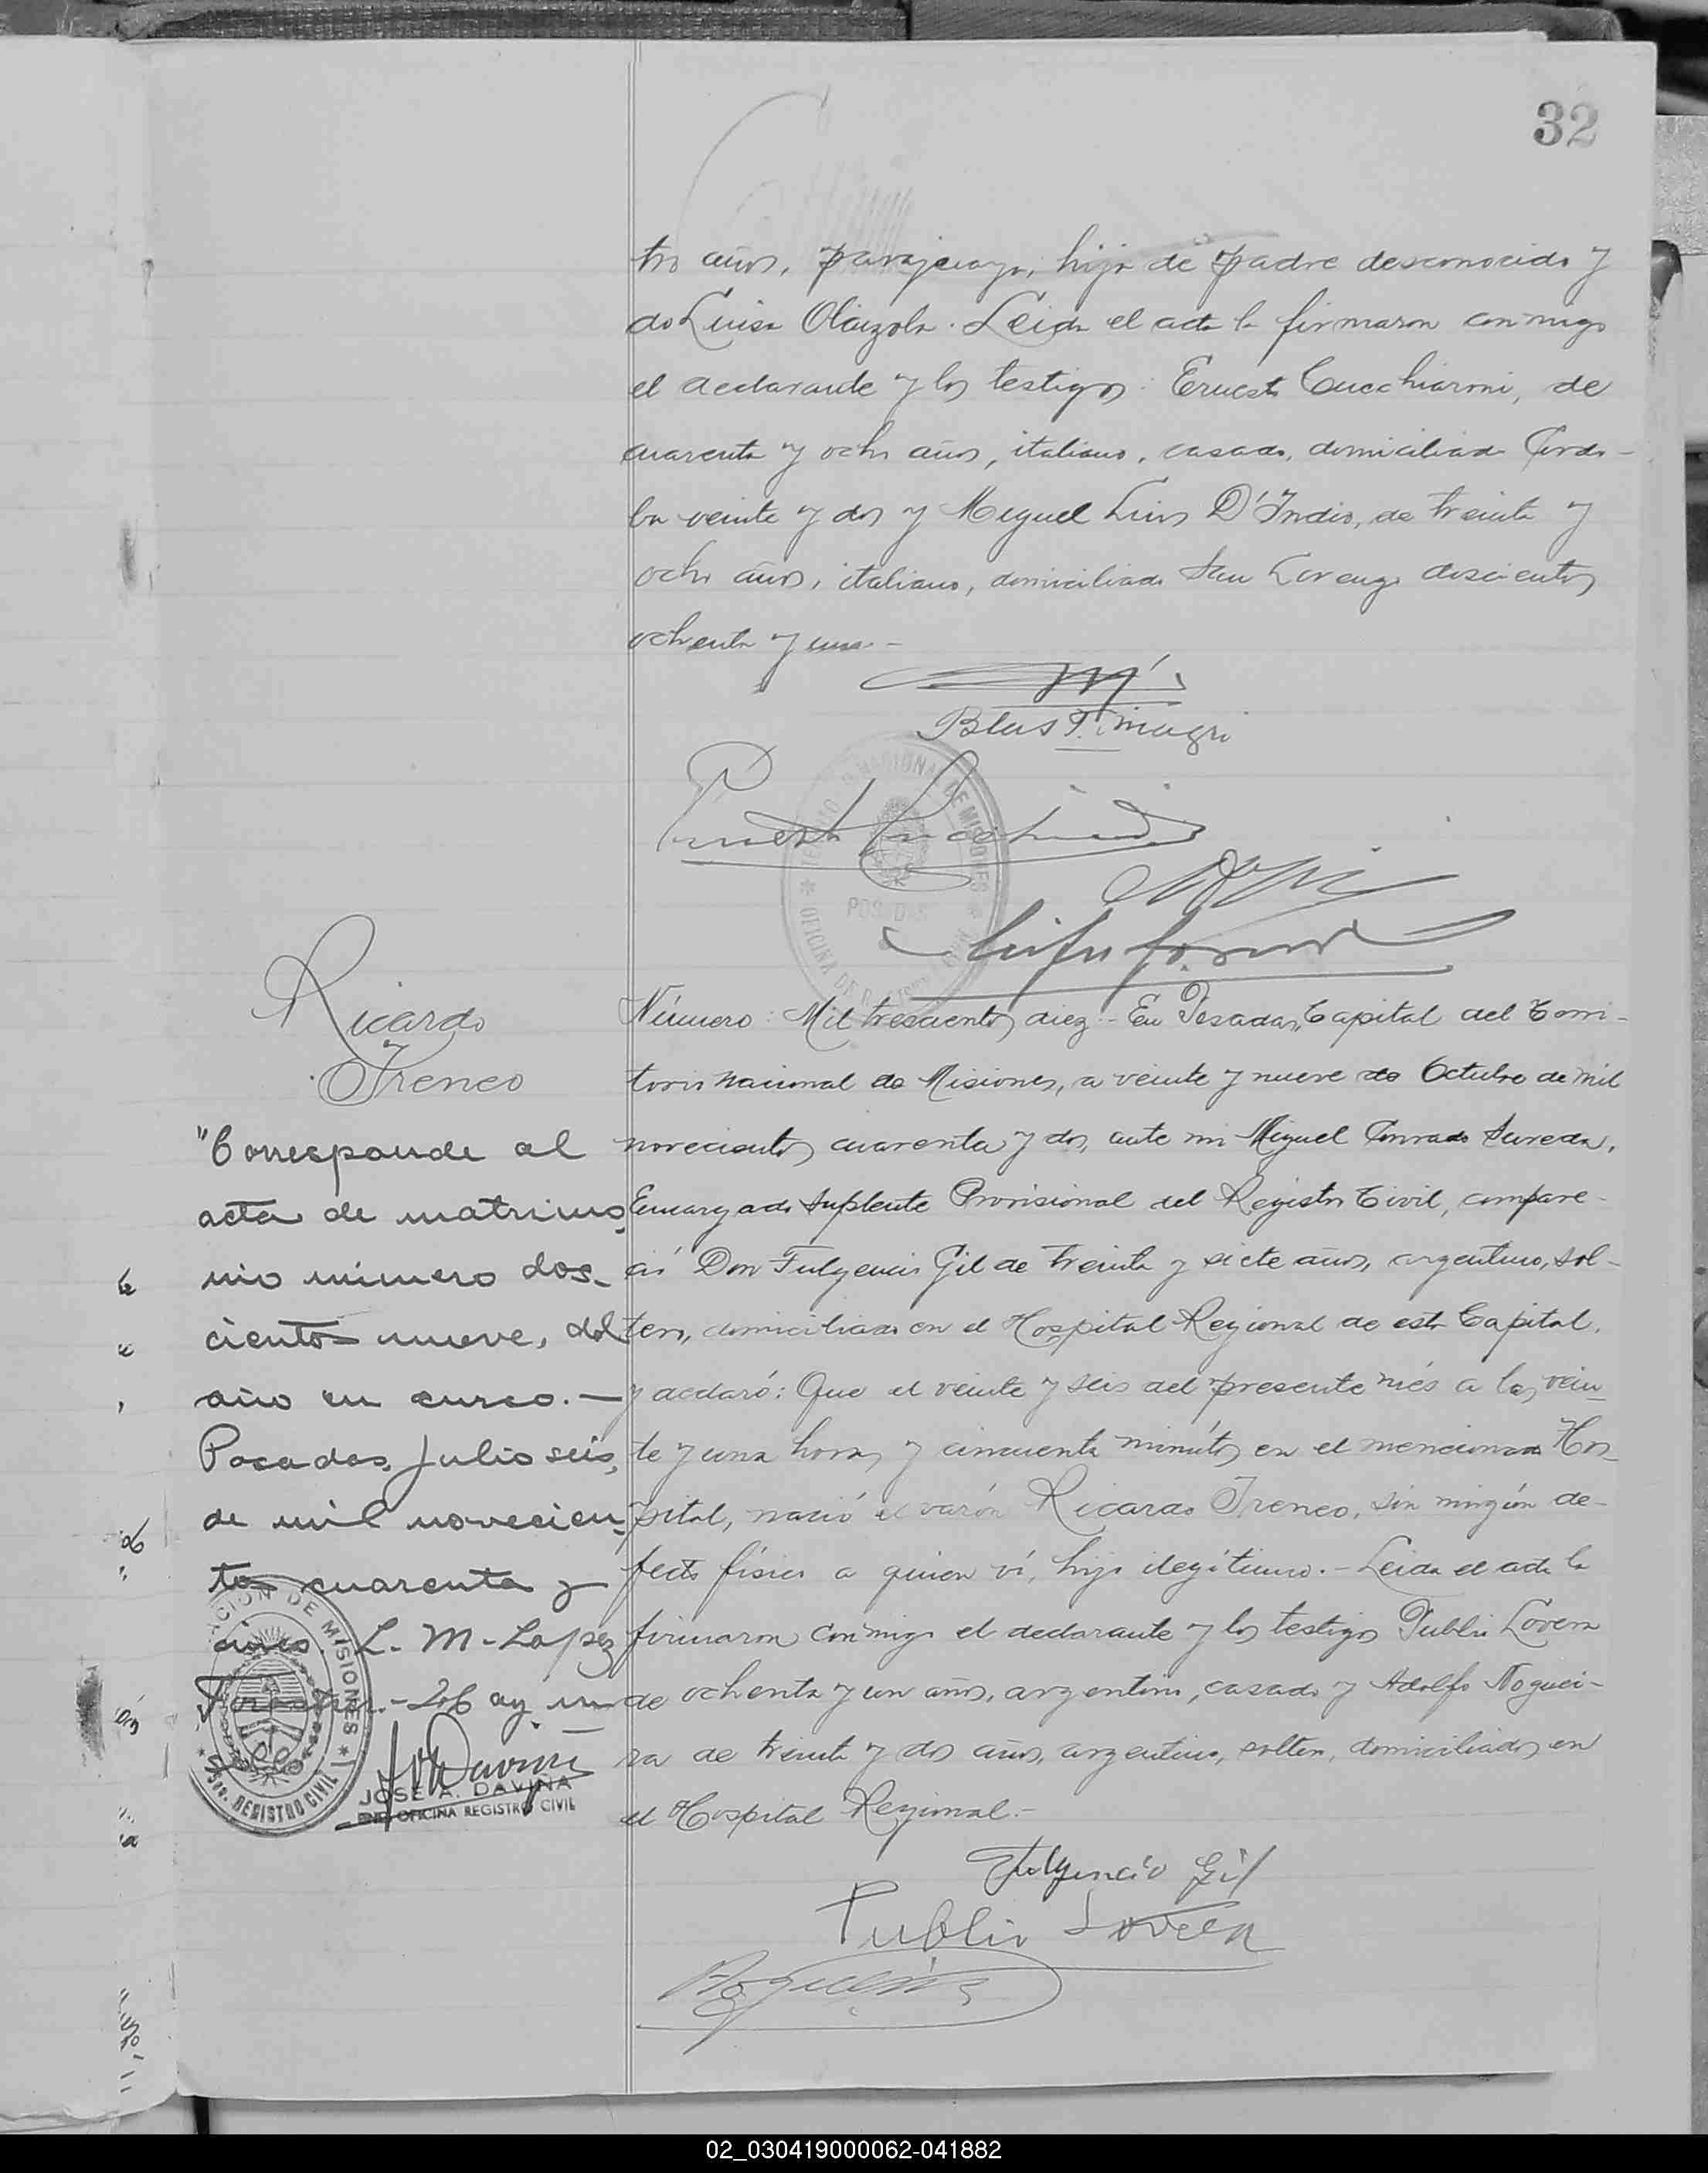 32
tro años, paraguaya, hija de padre desconocido y
de Luisa Olaizola. Leida el acta la firmaron conmigo
el declarante y los testigos: Ernesto Cucchiaroni, de
cuarenta y ocho años, italiano, casado, domiciliado Cordo-
ba veinte y dos y Miguel Luis D'Indio, de treinta y
ocho años, italiano, domiciliado San Lorenzo doscientos
ochenta y uno.-
Blas T. Magri
TERRITORIO NACIONAL DE MISIONES
POSADAS
OFICINA DE REGISTRO CIVIL
Ricardo
Ireneo
"Corresponde al
acta de matrimo-
nio número dos-
cientos nueve, del
año en curso.-
Posadas, Julio seis,
de mil novecien-
tos cuarenta y
cinco. L. M. Lopez
Forastier.-206 ay
JOSE A. DAVIÑA
OFICINA REGISTRO CIVIL
DE MISIONES
REGISTRO CIVIL
Número: Mil trescientos diez.- En Posadas, Capital del Terri-
torio Nacional de Misiones, a veinte y nueve de Octubre de mil
novecientos cuarenta y dos, ante mi Miguel Conrado Sureda,
Encargado Suplente Provisional del Registro Civil, compare-
ció Don Fulgencio Gil de treinta y siete años, argentino, sol-
tero, domiciliado en el Hospital Regional de esta Capital,
y declaró: Que el veinte y seis del presente més a las vein-
te y una horas y cincuenta minútos en el mencionado Hos-
pital, nació el varón Ricardo Ireneo, sin ningún de-
fecto físico a quien ví, hijo ilegítimo.- Leida el acta la
firmaron conmigo el declarante y los testigos Publio Lovera
de ochenta y un años, argentino, casado y Adolfo Noguei-
ra de treinta y dos años, argentino, soltero, domiciliados en
el Hospital Regional.-
Fulgencio Gil
Publio Lovera
02_030419000062-041882